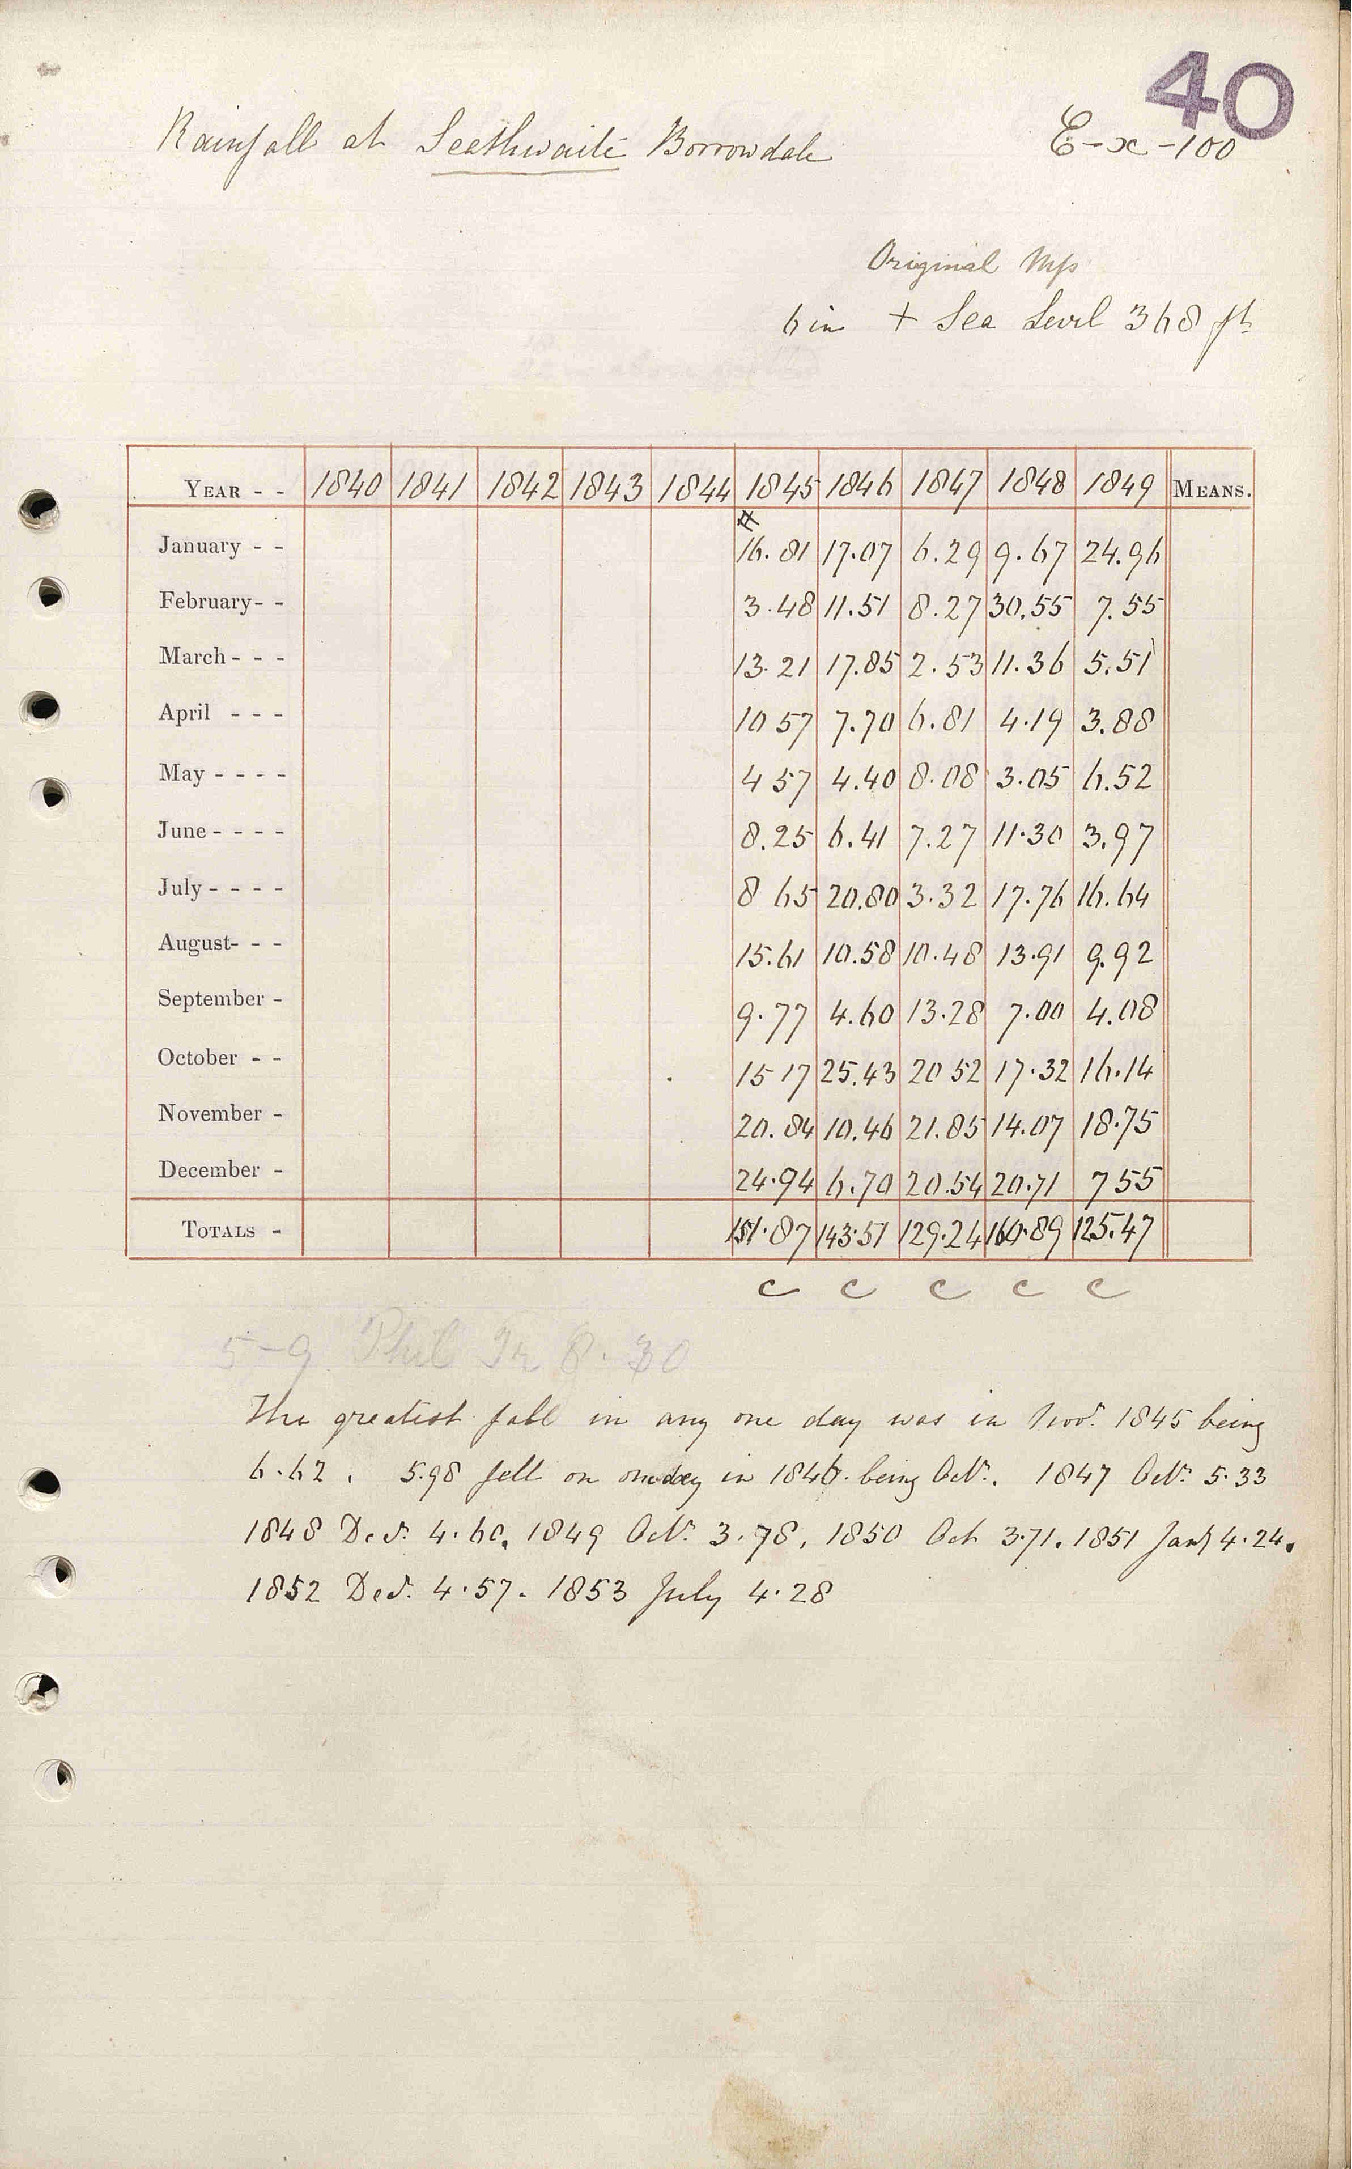 40
Rainfall at Seathwaite Borrowdale E-x-100
Original Mss
6 in + Sea Level 368 ft
YEAR - - 1840 1841 1842 1843 1844 1845 1846 1847 1848 1849 MEANS.
January - - 16.81 17.07 6.29 9.67 24.96
February- - 3.48 11.51 8.27 30.55 7.55
March - - - 13.21 17.85 2.53 11.36 5.51
April - - - 10 57 7.70 6.81 4.19 3.88
May - - - - 4 57 4.40 8.08 3.05 6.52
June - - - - 8.25 6.41 7.27 11.30 3.97
July - - - - 8 65 20.80 3.32 17.76 16.64
August- - - 15.61 10.58 10.48 13.91 9.92
September - 9.77 4.60 13.28 7.00 4.08
October - - 15 17 25.43 20 52 17.32 16.14
November - 20.84 10.46 21.85 14.07 18.75
December - 24.94 6.70 20.54 20.71 7 55
TOTALS - 151.87 143.51 129.24 160.89 125.47
c c c c c
5-9 Phil Tr 8.30
The greatest fall in any one day was in Novr. 1845 being
6.62. 5.98 fell on one day in 1846. being Octr. 1847 Octr. 5.33
1848 Decr. 4.60. 1849 Octr. 3.78. 1850 Oct 3.71. 1851 Jany 4.24.
1852 Decr. 4.57. 1853 July 4.28